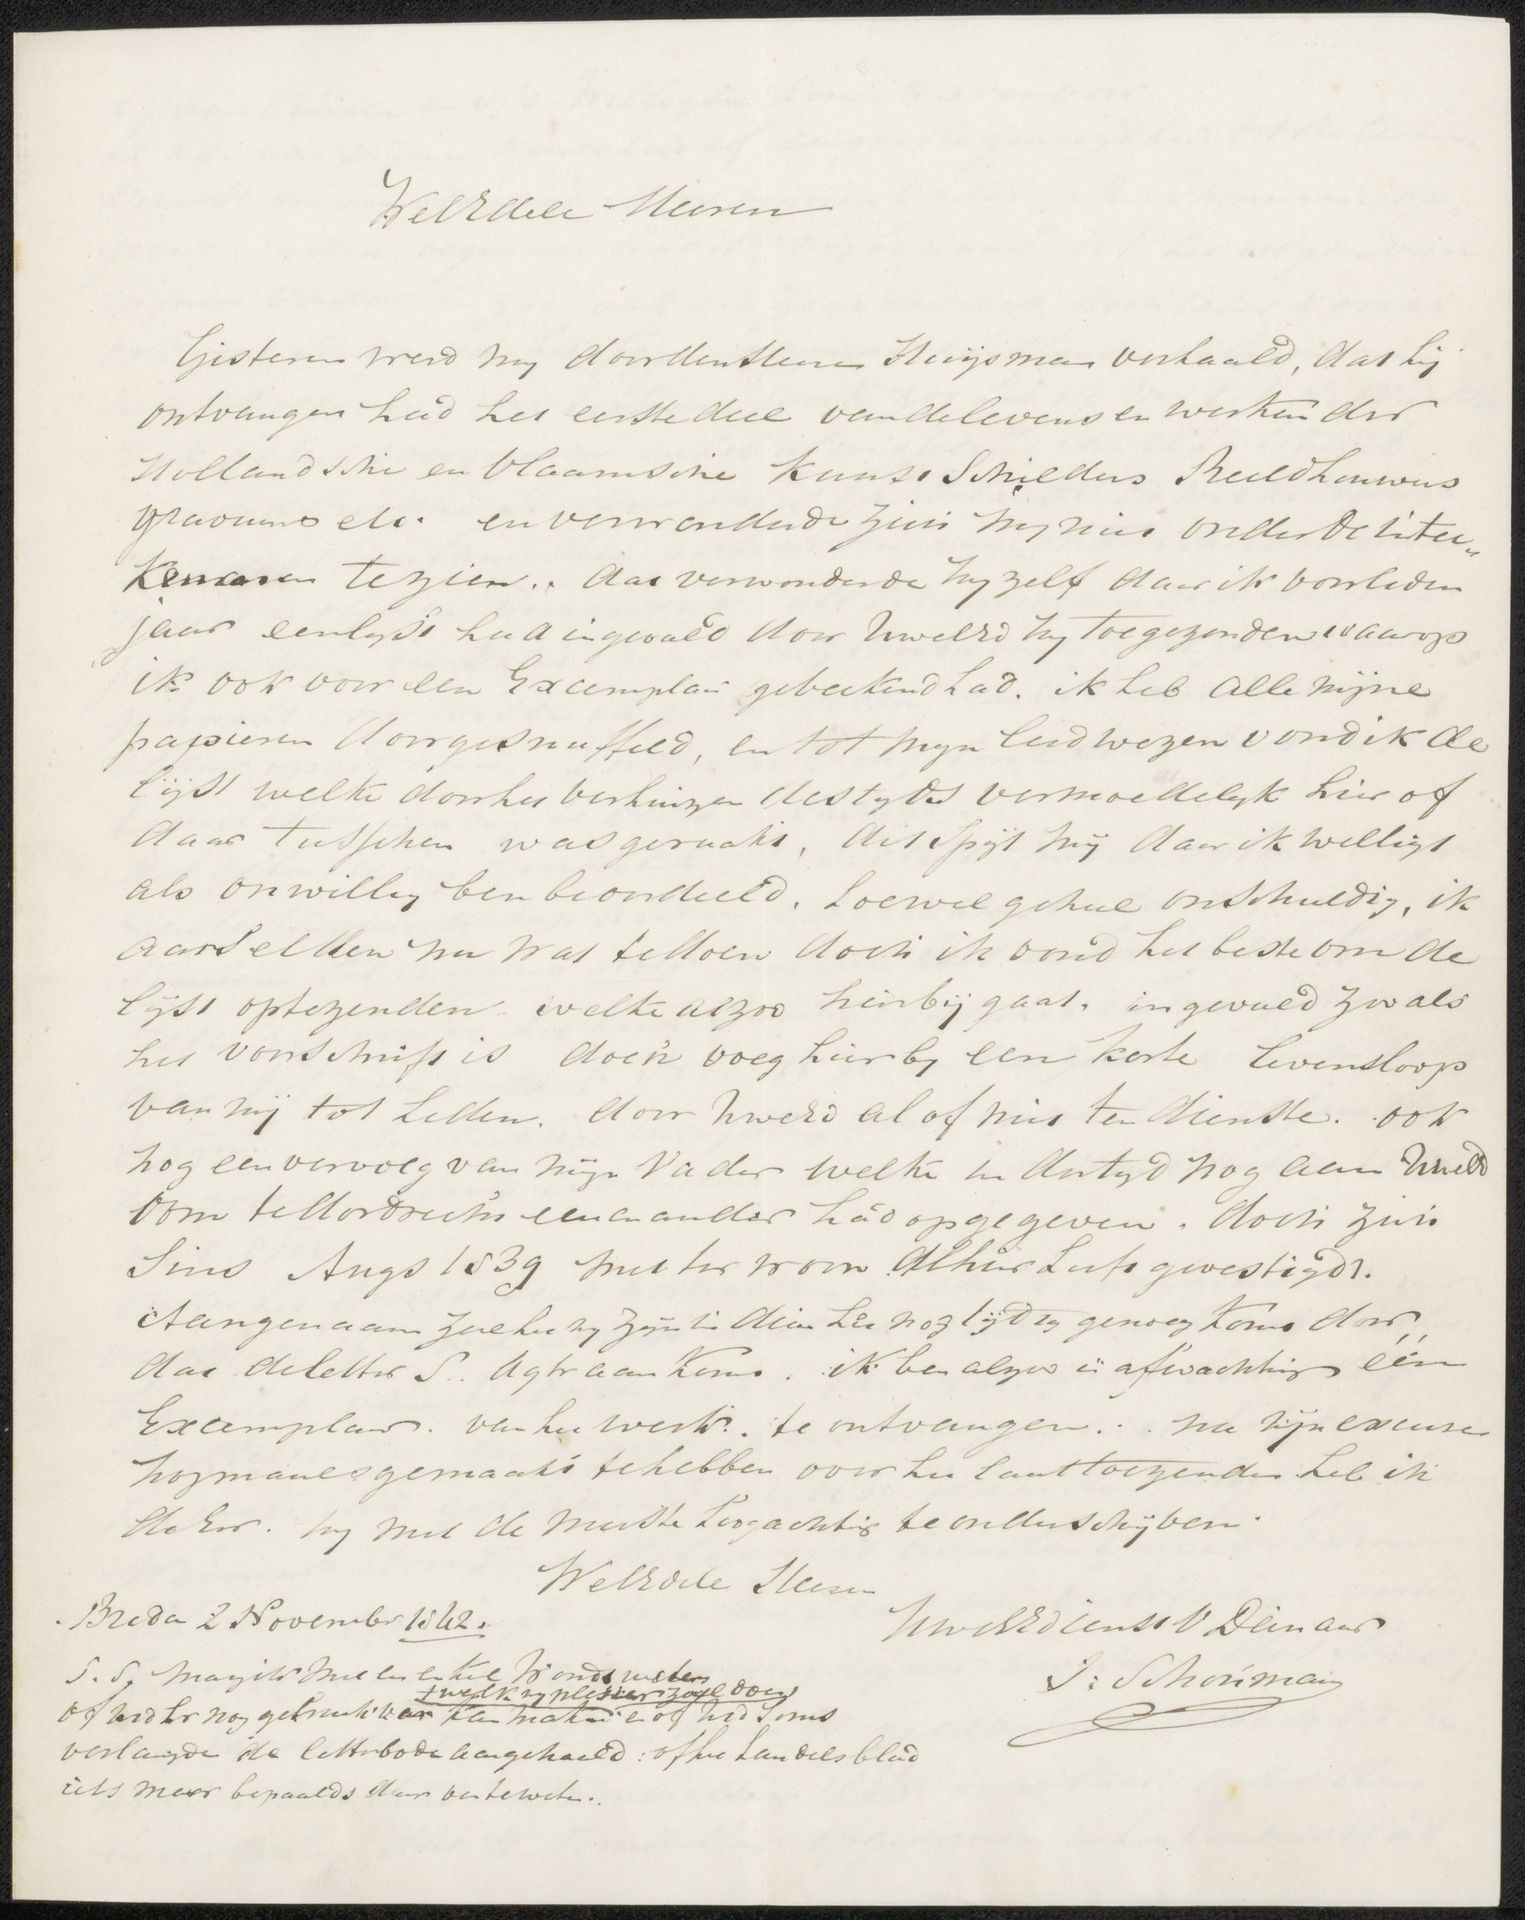 WelEdele Heeren
Gisteren werd my door den Heer Huijsmans verhaald, dat hij
ontvangen had het eerste deel van de levens en werken der
Hollandsche en Vlaamsche Kunst Schilders Beeldhouwers
graveurs etc. en verwonderde zich my niet onder de intee„
kenaren te zien.. dat verwonderde my zelf daar ik voorleden
jaar een lyst had ingevuld door UwelEd my toegezonden waarop
ik ook voor een Exemplaar geteekend had. ik heb alle mijne
papieren doorgesnuffeld, en tot myn leidwezen vond ik de
lijst welke door het verhuizen destyds vermoedelyk hier of
daar tusschen was geraakt, dit spijt mij daar ik welligt
als onwillig ben beoordeeld, hoewel geheel onschuldig, ik
aarselden nu wat te doen doch ik vond het beste om de
lyst optezenden welke alzoo hierbij gaat. ingevuld zoo als
het voorschrift is doch voeg hierby een korte levensloop
van mij tot heden. door UwelEd al of niet ten dienste. ook
nog een vervolg van mijn Vader welke in der tyd nog aan UwelEd
Oom te Dordrecht een en ander had opgegeven. doch zich
Sints Augs 1839 met ter woon alhier heeft gevestigd.
Aangenaam zoude het my zyn indien het nog tijdig genoeg komt door„
dat de letter S. agter aan komt. ik ben alzoo in afwachting een
Exemplaar. van het werk. te ontvangen.. na mijn excuse
nogmaals gemaakt te hebben over het laat toezenden heb ik
de Eer. my met de meeste hoogachting te onderschijven.
WelEdele Heeren
UwelEd dienstv Dienaar
S: Schouman
Breda 2 November 1842.
P.S. mag ik met een enkel woord weten
+ welk my plesier zoude doen
of UEd er nog gebruik van kan maken en of UEd soms
verlangde de letterbode aangehaald: of het handelsblad
iets meer bepaalds daar van te weten..